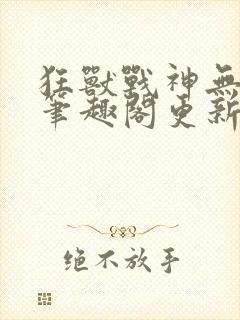 狂獸戰神無
筆趣閣更新
绝不放手